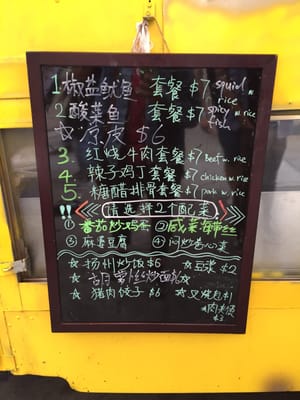 1 椒盐鱿鱼 套餐 $7 squid w. rice
2 酸菜鱼 套餐 $7 spicy fish w. rice
☆ 凉皮 $6
3. 红烧牛肉套餐 $7 Beef w. rice
4. 辣子鸡丁套餐 $7 chicken w. rice
5. 糖醋排骨套餐 $7 pork w. rice
!! 请选择2个配菜
① 番茄炒鸡蛋 ② 咸菜海带丝
③ 麻婆豆腐 ④
☆ 扬州炒饭 $6 ☆ 豆浆 $2
☆ 胡萝卜丝炒面
☆ 猪肉饺子 $6 ☆ 叉烧包
$3